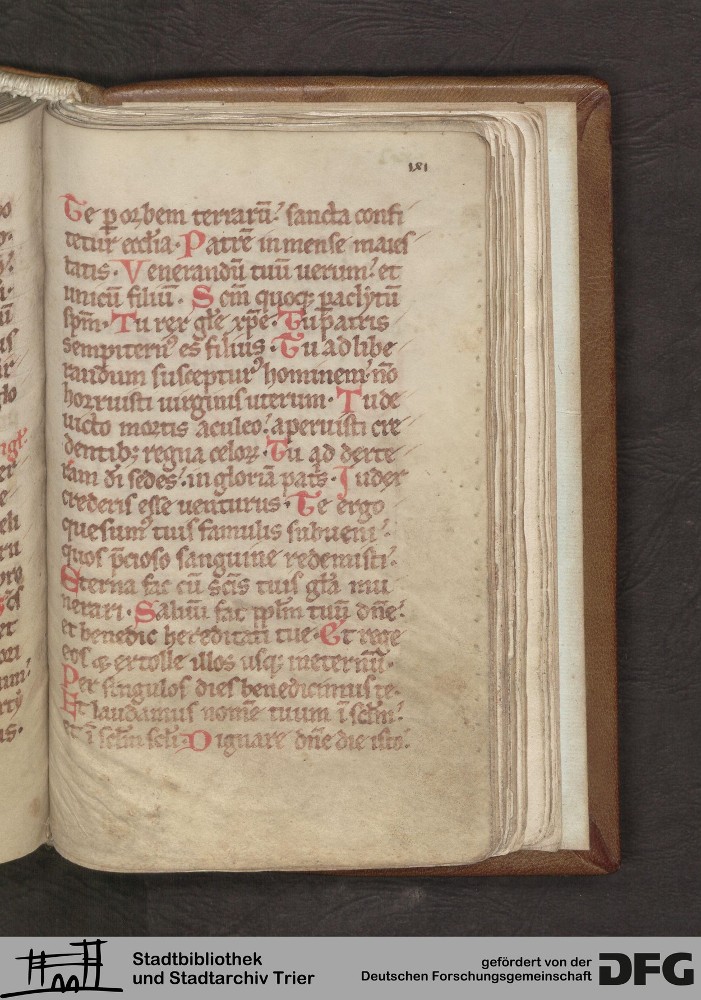 181
Te p orbem terrarū sancta confi
tetur eccl̄ia. Patrē inmense maies
tatis. Venerandū tuū uerum et
unicū filiū. Scm̄ quoq; paclytū
spm̄. Tu rex gl̄e xp̄e. Tu patris
sempitern⁹ es filius. Tu ad libe
randum susceptur⁹ hominem nō
horruisti uirginis uterum. Tu de
uicto mortis aculeo aperuisti cre
dentib; regna celoꝝ. Tu ad dexte
ram dī sedes in gloriā pat̄s. Iudex
crederis esse uenturus. Te ergo
quesum⁹ tuis famulis subueni
quos p̄cioso sanguine redemisti.
Eterna fac cū sc̄is tuis gl̄a mu
nerari. Saluū fac pplm̄ tuū dn̄e
et benedic hereditati tue. Et rege
eos & extolle illos usq; ineternū.
Per singulos dies benedicimus te.
Et laudamus nomē tuum ī sclm̄
et ī sclm̄ scl̄i. Dignare dn̄e die isto
Stadtbibliothek
und Stadtarchiv Trier
gefördert von der
Deutschen Forschungsgemeinschaft
DFG